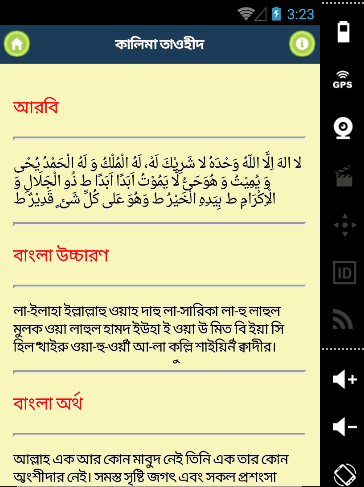 3:23
কালিমা তাওহীদ
GPS
আরবি
لا الهَ اِلَّا اللّهُ وَحْدَهُ لا شَرِيْكَ لَهُ، لَهُ الْمُلْكُ وَ لَهُ الْحَمْدُ يُحْى
وَ يُمِيْتُ وَ هُوَحَىٌّ لَّا يَمُوْتُ اَبَدًا اَبَدًا ط ذُو الْجَلَالِ وَ
الْاِكْرَامِ ط بِيَدِهِ الْخَيْرُ ط وَهُوَ عَلى كُلِّ شَئٍ قَدِيْرٌ ط
বাংলা উচ্চারণ
লা-ইলাহা ইল্লাল্লাহু ওয়াহ দাহু লা-সারিকা লা-হু লাহুল
মুলক ওয়া লাহুল হামদ ইউহা ই ওয়া উ মিত বি ইয়া সি
হিল খাইরু ওয়া-হু-ওয়া আ-লা কুল্লি শাইয়িন ক্বাদীর।
বাংলা অর্থ
আল্লাহ এক আর কোন মাবুদ নেই তিনি এক তার কোন
অংশীদার নেই। সমস্ত সৃষ্টি জগৎ এবং সকল প্রশংসা
ID